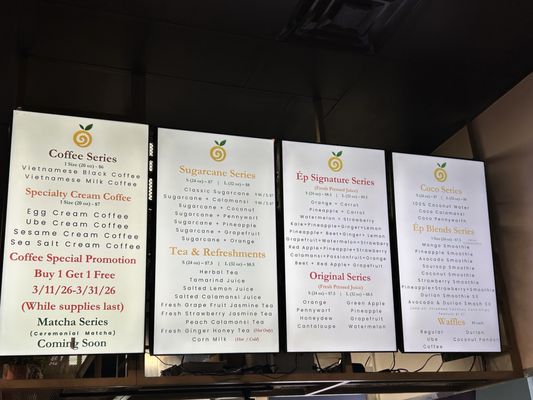 Coffee Series
1 Size (20 oz) - $6
Vietnamese Black Coffee
Vietnamese Milk Coffee
Specialty Cream Coffee
1 Size (20 oz) - $7
Egg Cream Coffee
Ube Cream Coffee
Sesame Cream Coffee
Sea Salt Cream Coffee
Coffee Special Promotion
Buy 1 Get 1 Free
3/11/26-3/31/26
(While supplies last)
Matcha Series
(Ceremonial Matcha)
Coming Soon
Sugarcane Series
S (24 oz) - $7 | L (32 oz) - $8
Classic Sugarcane
Sugarcane + Calamansi
Sugarcane + Coconut
Sugarcane + Pennywort
Sugarcane + Pineapple
Sugarcane + Grapefruit
Sugarcane + Orange
Tea & Refreshments
S (24 oz) - $7.5 | L (32 oz) - $8.5
Herbal Tea
Tamarind Juice
Salted Lemon Juice
Salted Calamansi Juice
Fresh Grape Fruit Jasmine Tea
Fresh Strawberry Jasmine Tea
Peach Calamansi Tea
Fresh Ginger Honey Tea (Hot Only)
Corn Milk - (Hot / Cold)
Ép Signature Series
(Fresh Pressed Juice)
Orange + Carrot
Pineapple + Carrot
Watermelon + Strawberry
Kale+Pineapple+Ginger+Lemon
Pineapple+ Beet+Ginger+ Lemon
Grapefruit+Watermelon+Strawberry
Red Apple+Pineapple+Strawberry
Calamansi+Passionfruit+Orange
Beet + Red Apple+ Grapefruit
Original Series
(Fresh Pressed Juice)
Orange Green Apple
Pennywort Pineapple
Honeydew Grapefruit
Cantaloupe Watermelon
Coco Series
100% Coconut Water
Coco Calamansi
Coco Pennywort
Ép Blends Series
Mango Smoothie
Pineapple Smoothie
Avocado Smoothie
Soursop Smoothie
Coconut Smoothie
Strawberry Smoothie
Pineapple+Strawberry+Smoothie
Durian Smoothie
Avocado & Durian Smoothie
Waffles
Regular Durian
Ube Coconut Pandan
Coffee